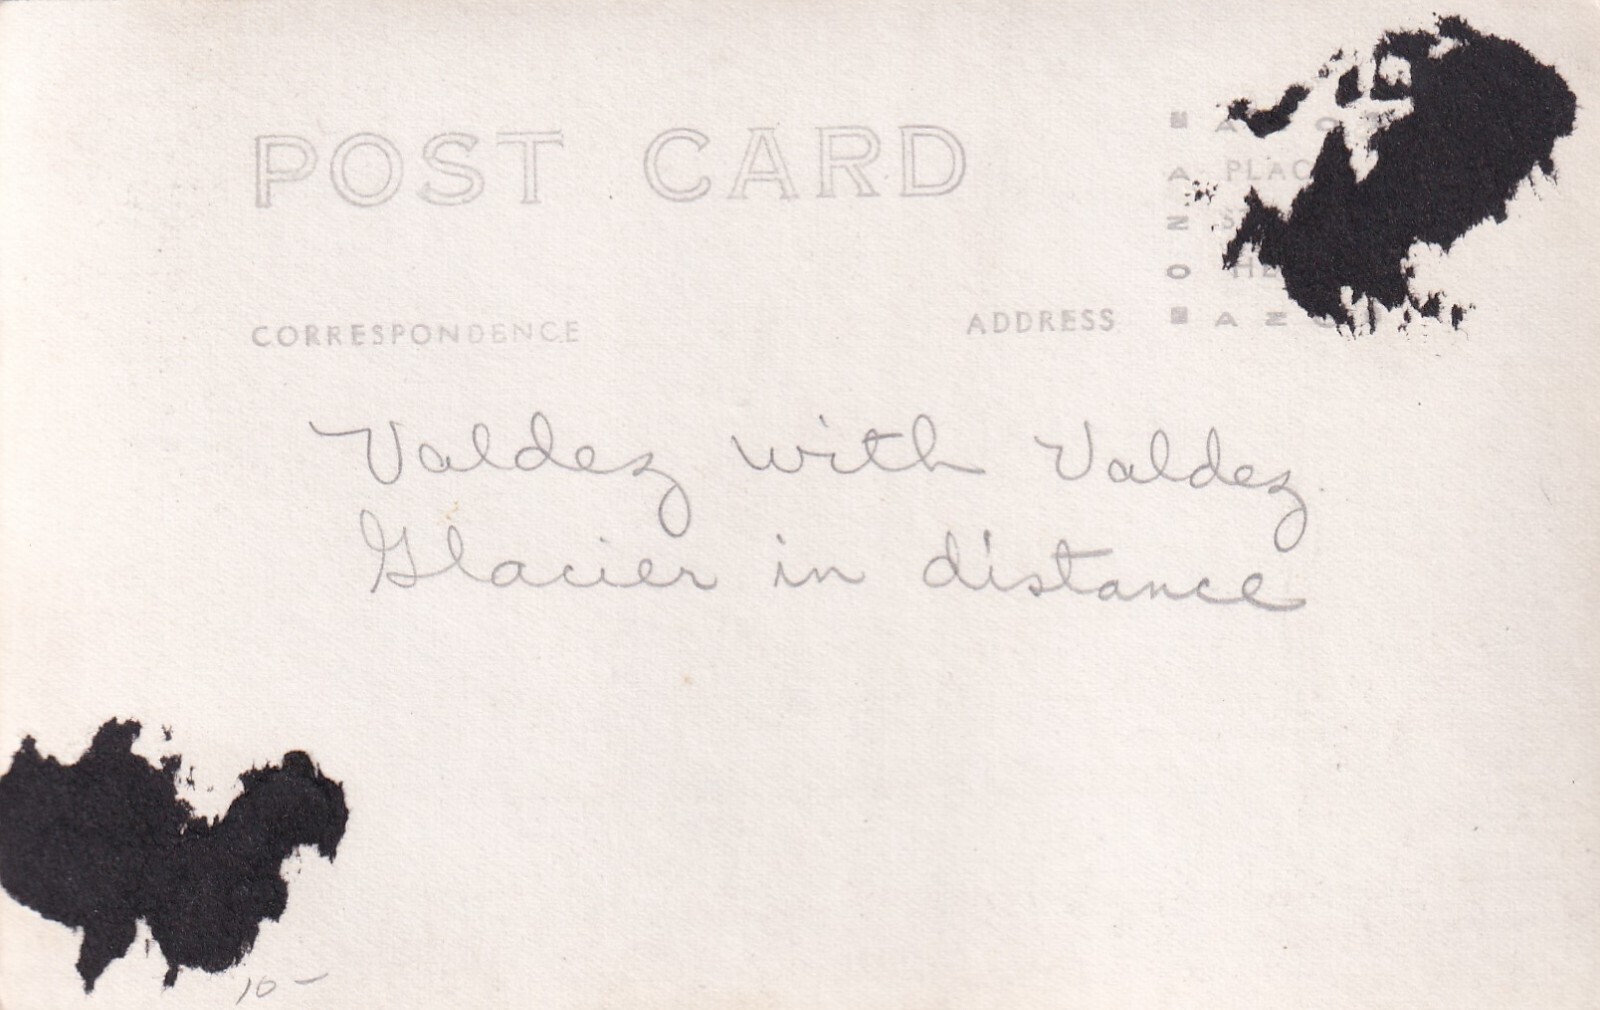 POST CARD
PLAC
HE
CORRESPONDENCE
ADDRESS
Valdez with Valdez
Glacier in distance
10-